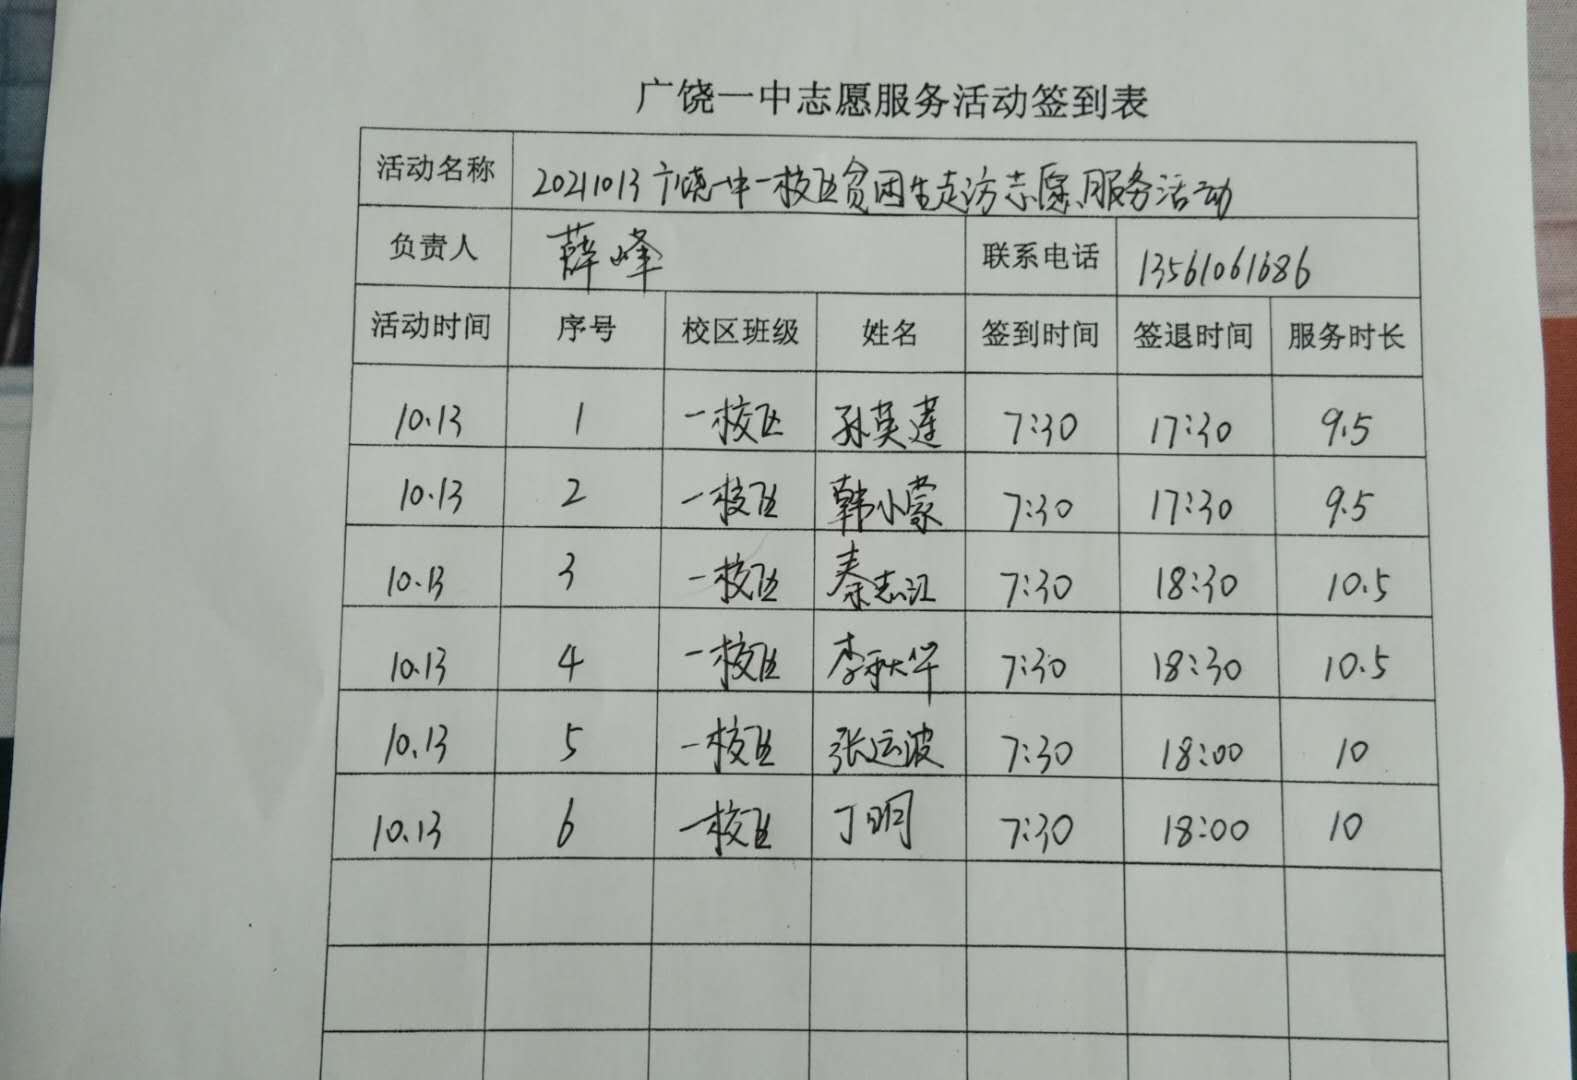 广饶一中志愿服务活动签到表
活动名称 20211013广饶一中一校区贫困生走访志愿服务活动
负责人 薛峰 联系电话 13561061686
活动时间 序号 校区班级 姓名 签到时间 签退时间 服务时长
10.13 1 一校区 孙英莲 7:30 17:30 9.5
10.13 2 一校区 韩小蒙 7:30 17:30 9.5
10.13 3 一校区 秦志江 7:30 18:30 10.5
10.13 4 一校区 李秋华 7:30 18:30 10.5
10.13 5 一校区 张运波 7:30 18:00 10
10.13 6 一校区 丁明 7:30 18:00 10